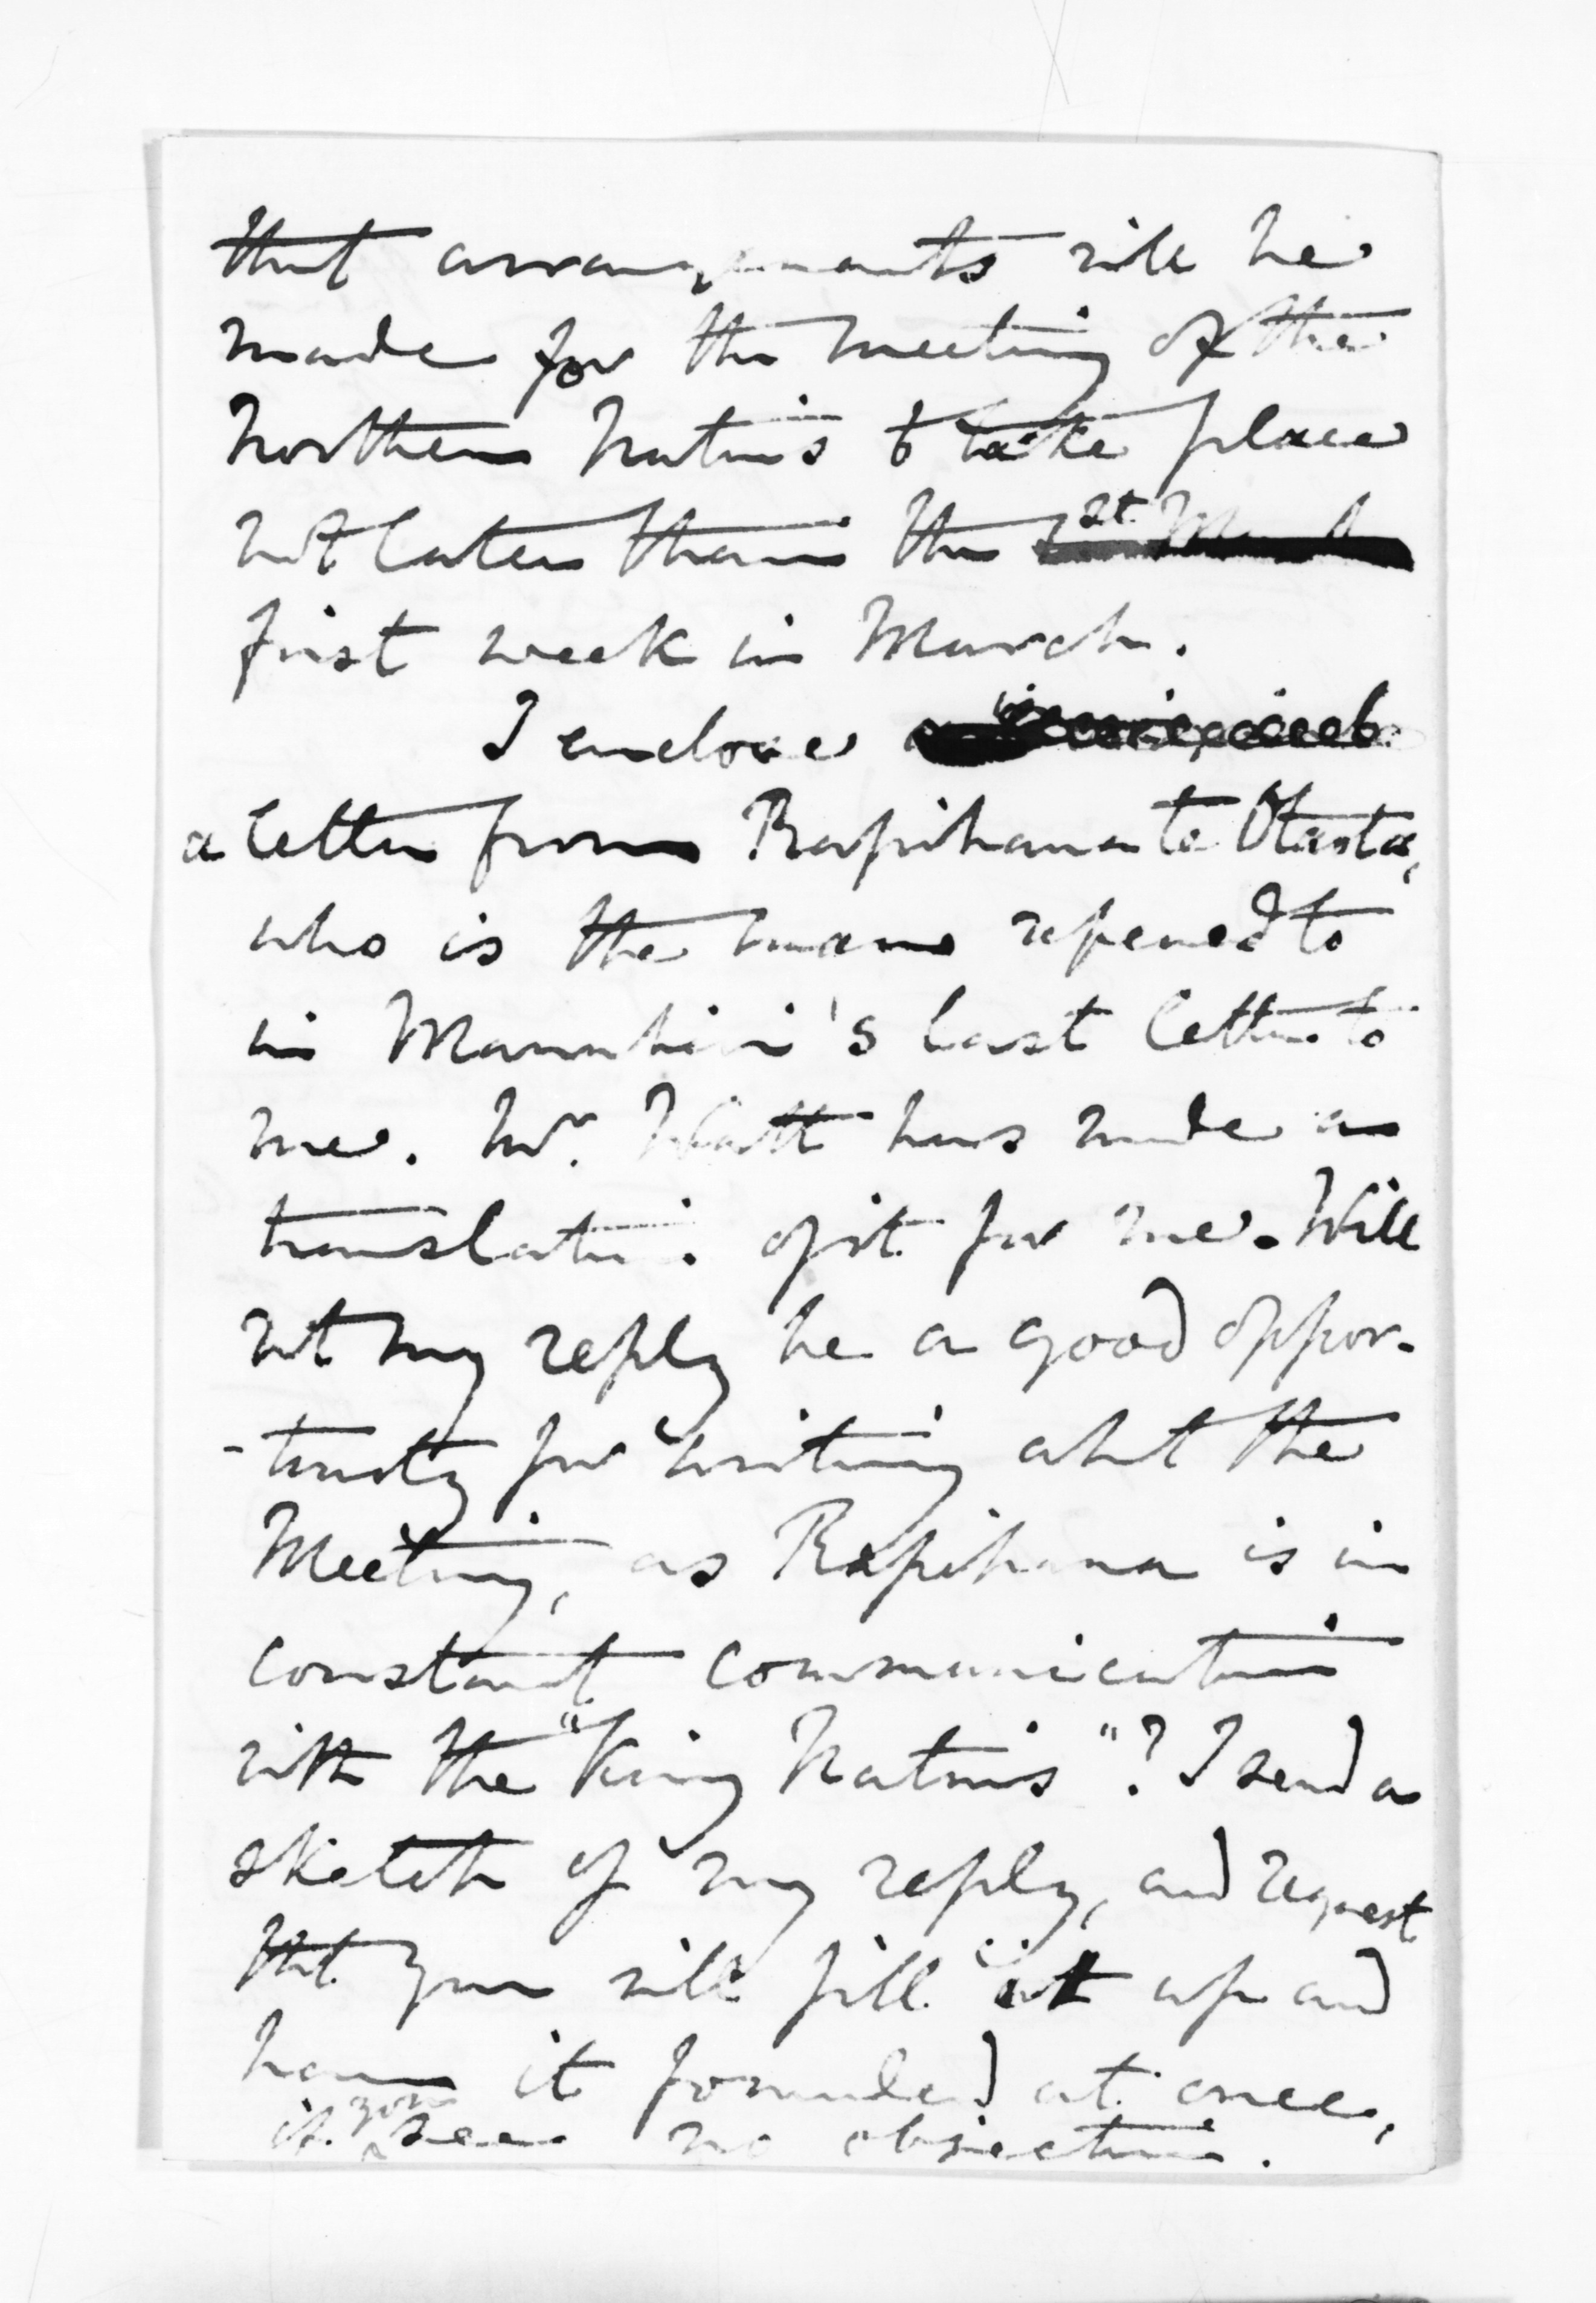 that arrangements will be
made for the meeting of the
Northern Natives to take place
not later than the 1st. March
first week in March.
I enclose
a letter from Rapihana te Otaota,
who is the man referred to
in Manuhiri's last letter to
me. Mr. Watt has made a
translation of it for me. Will
not my reply be a good oppor-
-tunity for writing abt the
Meeting, as Rapihana is in
constant communication
with the "King Natives"? I send a
sketch of my reply, and request
that you will fill it up and
have it forwarded at once,
if you see no objection.